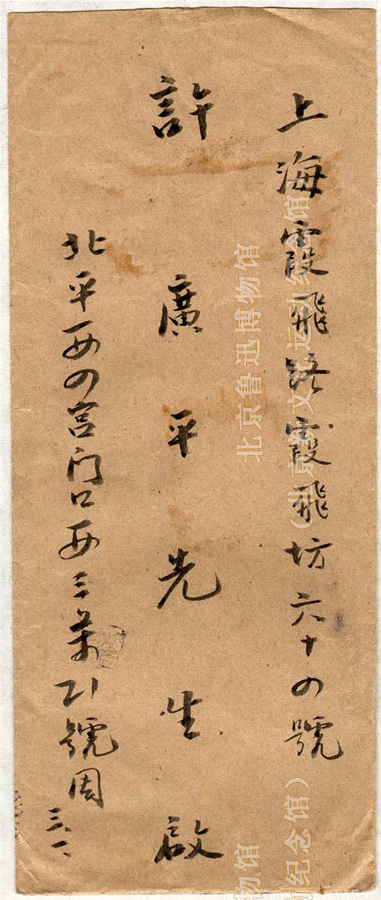 上海霞飛路霞飛坊六十四號
許廣平先生啟
北平西四宮門口西三条21號周
北京鲁迅博物馆
（北京新文化运动纪念馆）
物馆
纪念馆）